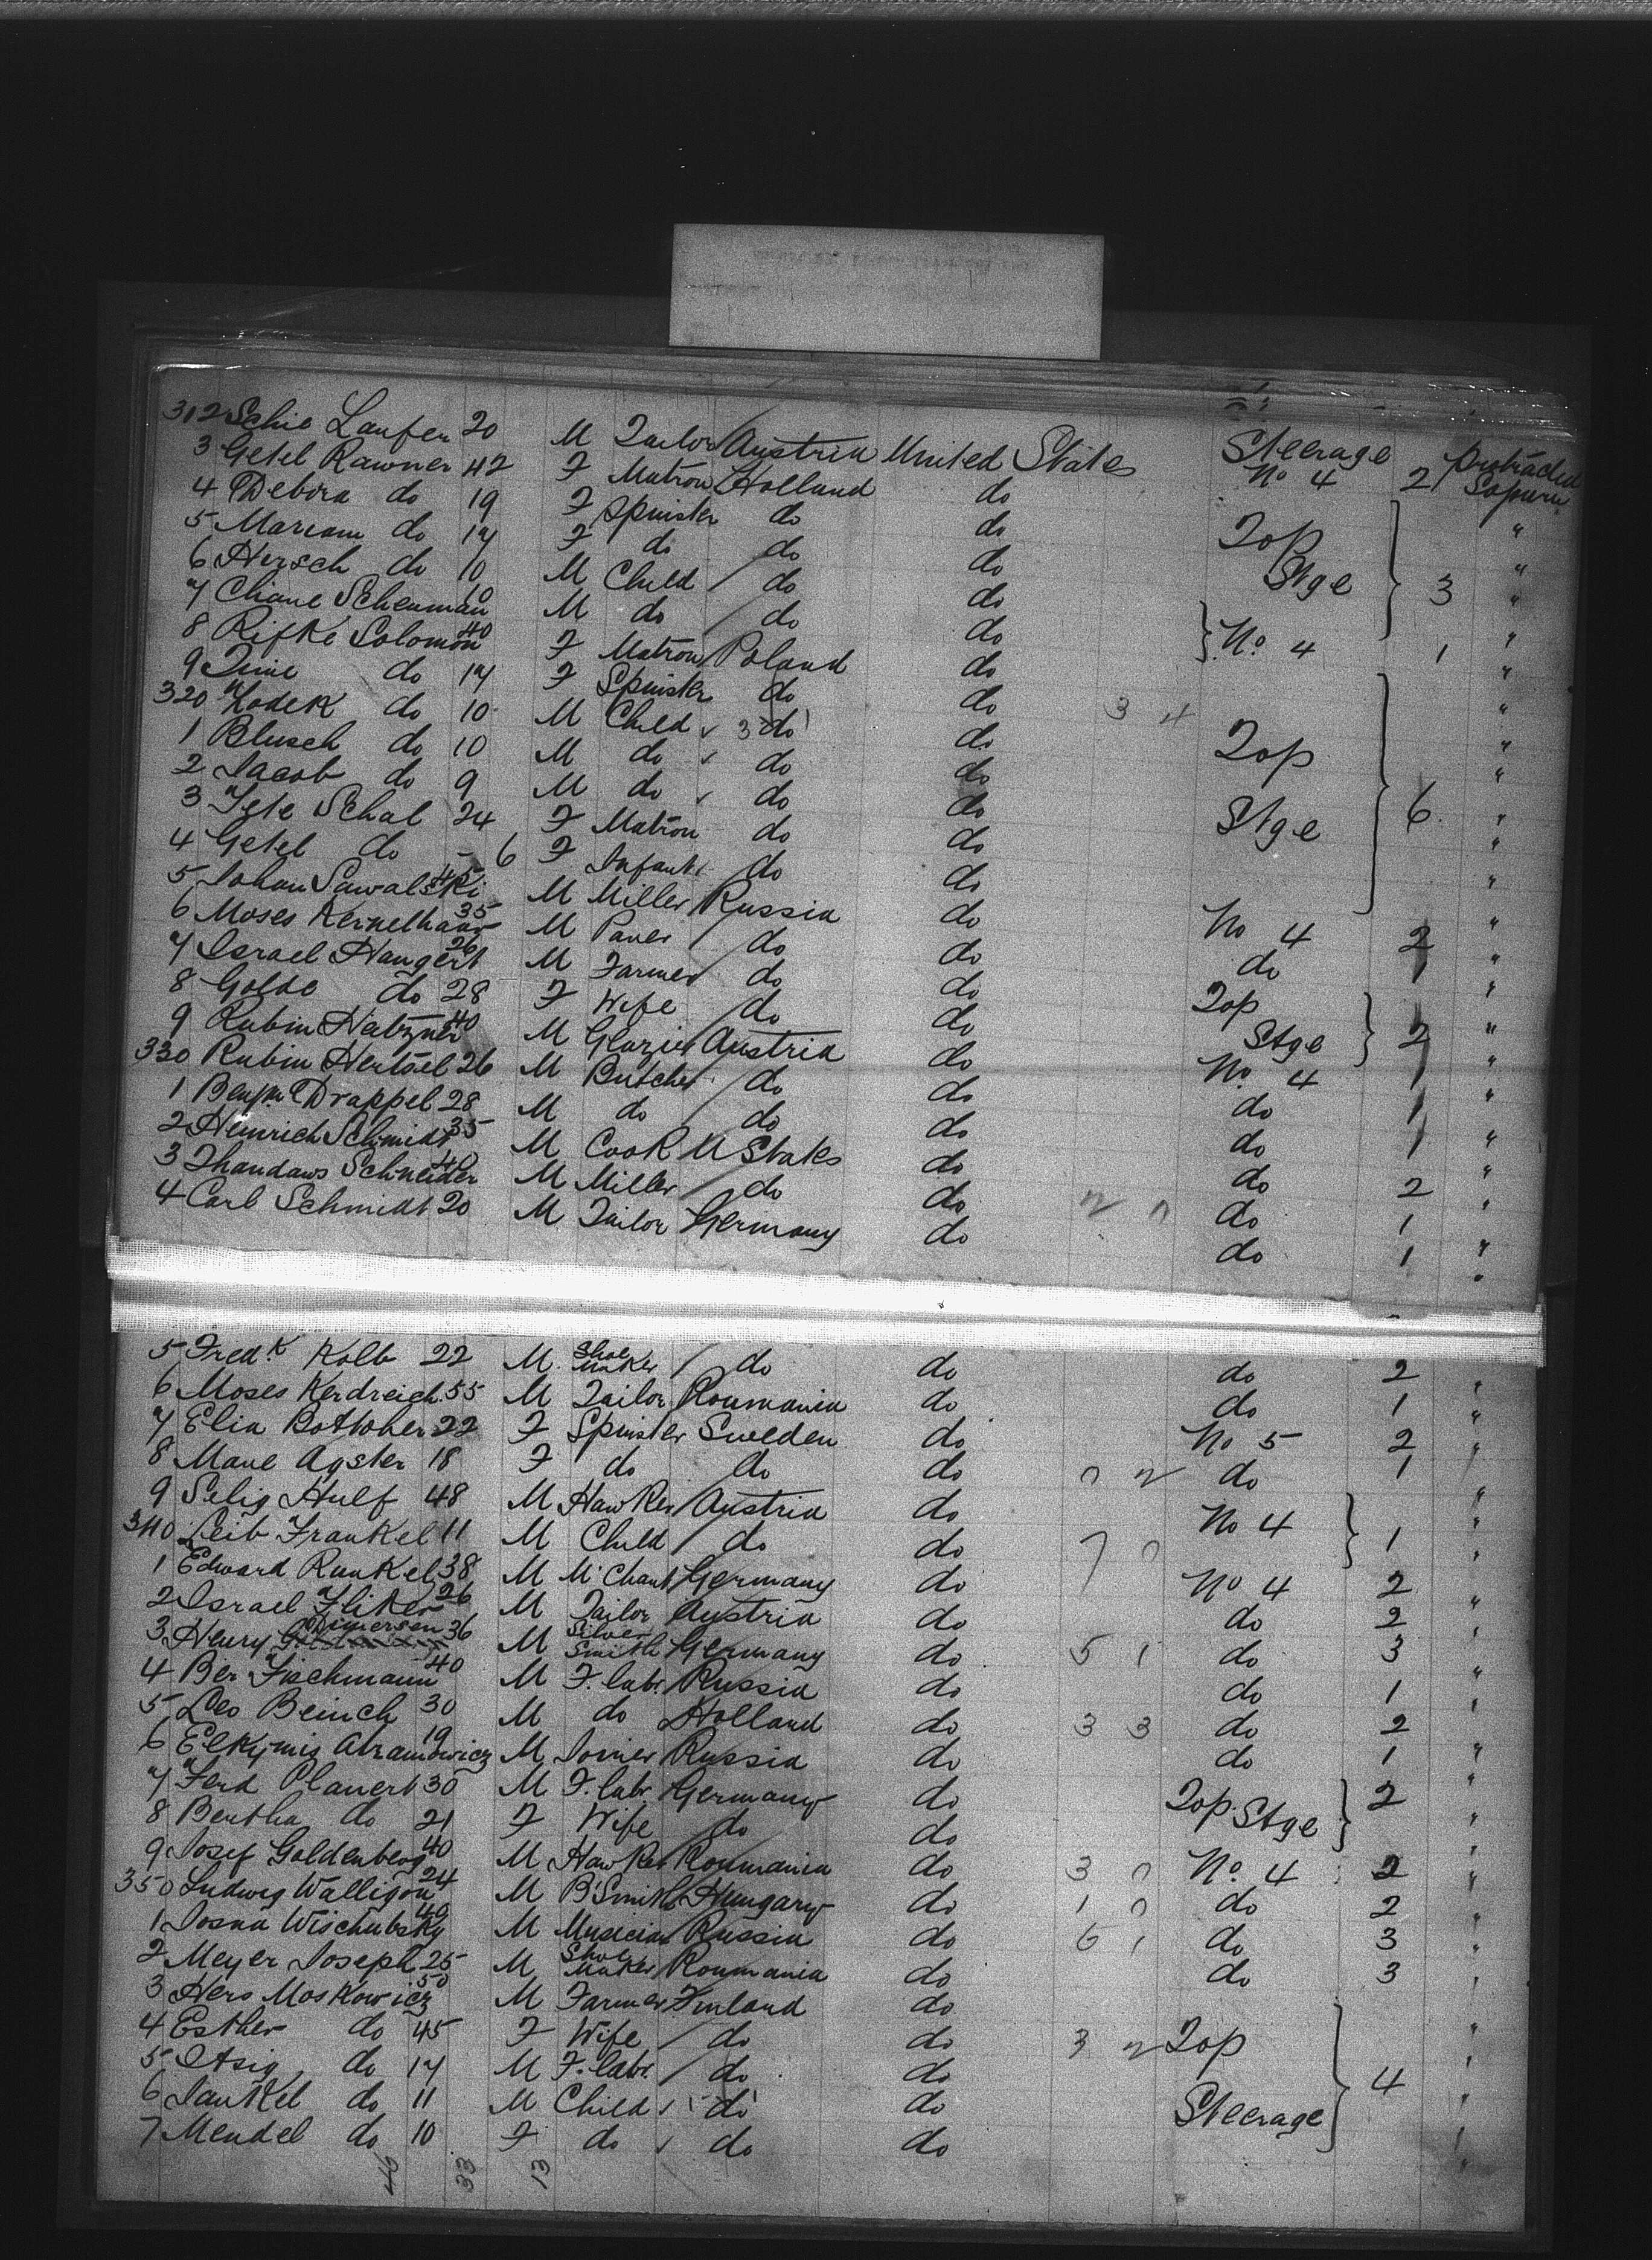 312 Schie Laufer 20 M Tailor Austria United States Steerage No 4 2 protracted Sojourn
3 Getel Rawner 42 F Matron Holland do "
4 Debora do 19 F Spinster do do Top "
5 Mariam do 17 F do do do Stge 3 "
6 Hersch do 10 M Child do do "
7 Chane Scheuman 10 M do do do No. 4 1 "
8 Rifke Solomon 40 F Matron Poland do "
9 do 17 F Spinster do do "
320 Zodek do 10 M Child 3 do do 3 4 Top "
1 Blusch do 10 M do do do "
2 Jacob do 9 M do do do Stge 6 "
3 Jete Schal 24 F Matron do do "
4 Getel do - 6 F Infant do do "
5 Johan Sawalski 45 M Miller Russia do No 4 2 "
6 Moses Kernelhaus 35 M Paver do do do 1 "
7 Israel Hangert 26 M Farmer do do Top "
8 Golde do 28 F Wife do do Stge 2 "
9 Rubin 40 M Glazier Austria do No. 4 1 "
330 Rubin Hertsel 26 M Butcher do do do 1 "
1 Benjm Drappel 28 M do do do do 1 "
2 Heinrich Schmidt 35 M Cook U States do do 2 "
3 Schneider 40 M Miller do do do 1 "
4 Carl Schmidt 20 M Tailor Germany do do 1 "
5 Fredk Kolb 22 M Shoe maker do do do 2 "
6 Moses Kerdreich 55 M Tailor Roumania do do 1 "
7 Elia 22 F Spinster Sweden do No 5 2 "
8 Agster 18 F do do do do 1 "
9 Selig Hulf 48 M Hawker Austria do No 4 1 "
340 Leib Frankel 11 M Child do do 7 0 "
1 Edward Runkel 38 M M'Chant Germany do No 4 2 "
2 Israel Fliker 26 M Tailor Austria do do 2
3 Henry Dimersen 36 M Silver Smith Germany do 5 1 do 3 "
4 Ber Fischmann 40 M F. labr. Russia do do 1 "
5 Leo Beinch 30 M do Holland do 3 3 do 2
6 Elkymis Abramowicz 19 M Joiner Russia do do 1 "
7 Ferd Planert 30 M F. labr. Germany do Top Stge 2 "
8 Bertha do 21 F Wife do do "
9 Josef Goldenberg 40 M Hawker Roumania do 3 0 No. 4 2 "
350 Ludwig Walligon 24 M B'Smith Hungary do 1 0 do 2 "
1 Josna Wischubsky 40 M Musician Russia do 6 1 do 3 "
2 Meyer Joseph 25 M Shoe maker Roumania do do 3 "
3 Hers Moskowicz 50 M Farmer Finland do "
4 Esther do 45 F Wife do do 3 2 Top "
5 Itsig do 17 M F. labr. do do 4 "
6 Jankel do 11 M Child do do Steerage "
7 Mendel do 10 F do do do "
40 33 13